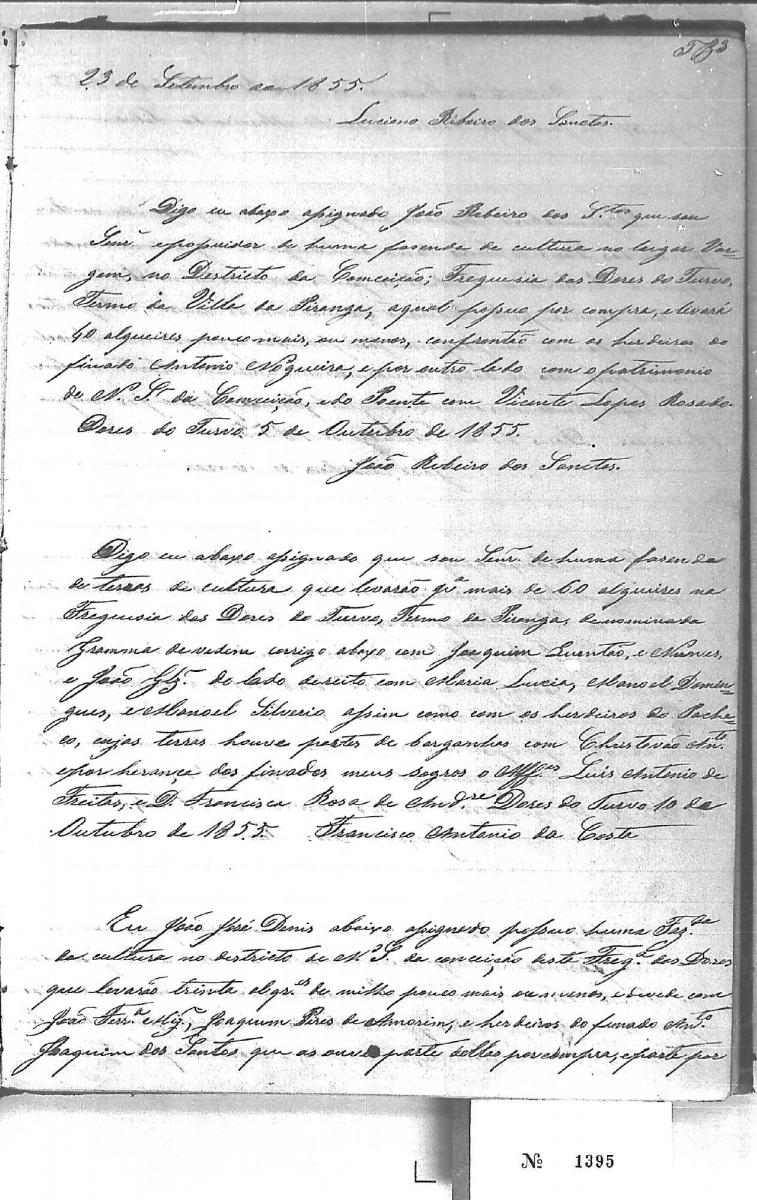 23 de Setembro de 1855.
Luciano Ribeiro dos Sanctos.
Digo eu abaxo assignado João Ribeiro dos S.tos que sou
Senr. e possuidor de huma fazenda de cultura no lugar Var-
gem, no Destricto da Comceição, Freguesia das Dores do Turvo,
Termo da Villa da Piranga, a qual possuo por compra, e levará
40 alqueires pouco mais, ou menos, confrontão com os herdeiros do
finado Antonio Nogueira, e por outro lado com o patrimonio
de N. S.ra da Comceição, e do Poente com Vicente Lopes Rosado.
Dores do Turvo 5 de Outubro de 1855.
João Ribeiro dos Sanctos.
Digo eu abaxo assignado que sou Senr. de huma fazenda
de terras de cultura que levarão mais de 60 alquires na
Freguesia das Dores do Turvo, Termo da Piranga, denominada
Gramma devedem corrigo abaxo com Joaquim Quantão, e Nunes,
e João Glz. do lado dereito com Maria Lucia, Manoel Domin-
gues, e Manoel Silverio assim como com os herdeiros do Pache-
co, cujas terras houve partes de barganhas com Christovão An.to
e por herança dos finados meus sogros o Alff.es Luis Antonio de
Freitas, e D. Francisca Rosa de And.re Dores do Turvo 10 de
Outubro de 1855. Francisco Antonio da Costa
Eu João José Denis abaixo assignado possuo huma Faz.da
de cultura no destricto de N. S. da Conceição deste Freg.a das Dores
que levarão trinta alqr.es de milho pouco mais ou menos, e devede com
João Ferr.a Joaquim Pires de Amorim, e herdeiros do finado An.to
Joaquim dos Santos, que as ouve parte dellas por compra, e parte por
Nº 1395